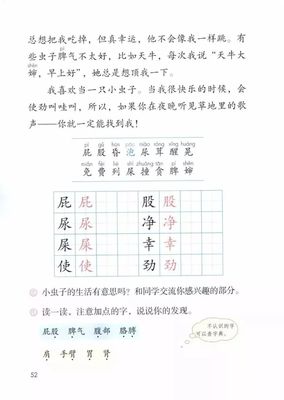 总想把我吃掉，但真幸运，他不会像我一样跳。有
pí
些虫子脾气不太好，比如天牛，每次我说“天牛大
shěn
婶，早上好”，她总是想顶我一下。
我喜欢当一只小虫子。当我很快乐的时候，会
使劲叫哇哇，所以，如果你在夜晚听见草地里的歌
声——你就一定能找到我！
pì gǔ hūn pào niào róng xǐng huǎng
屁股昏泡尿茸醒晃
miǎn fèi liè shǐ zhuàng tān pí shěn
免费列屎撞贪脾婶
屁 屁 股 股
尿 尿 净 净
屎 屎 幸 幸
使 使 劲 劲
小虫子的生活有意思吗？和同学交流你感兴趣的部分。
读一读，注意加点的字，说说你的发现。
屁股 脾气 腹部 胳膊
肩 手臂 胃 肾
不认识的字
可以查字典。
52